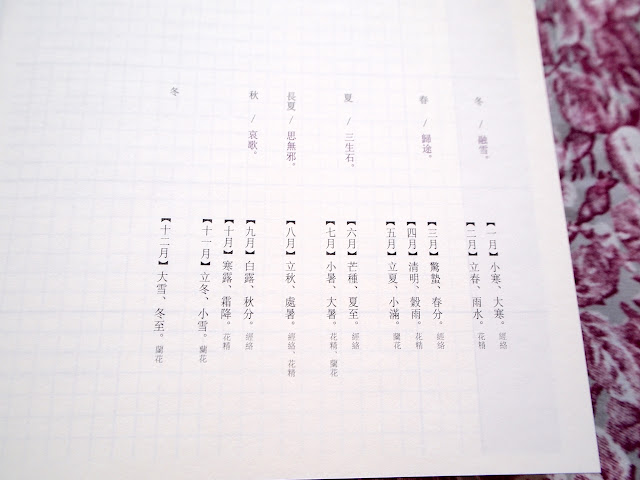 冬 / 融雪。
【一月】小寒、大寒。經絡
【二月】立春、雨水。花精
春 / 歸途。
【三月】驚蟄、春分。經絡
【四月】清明、穀雨。花精
【五月】立夏、小滿。蘭花
夏 / 三生石。
【六月】芒種、夏至。經絡
【七月】小暑、大暑。花精 蘭花
長夏 / 思無邪。
【八月】立秋、處暑。經絡、花精
秋 / 哀歌。
【九月】白露、秋分。經絡
【十月】寒露、霜降。花精
冬
【十一月】立冬、小雪。蘭花
【十二月】大雪、冬至。蘭花